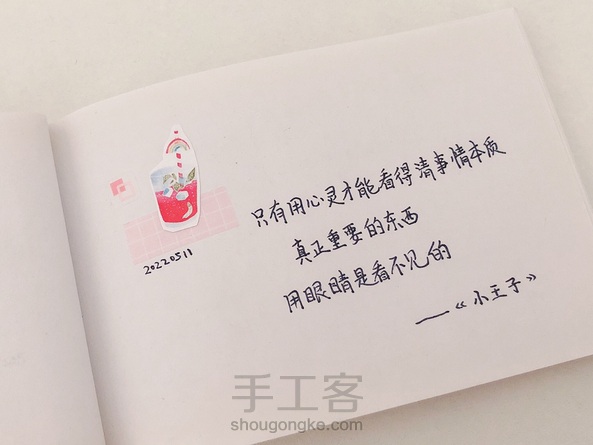 只有用心灵才能看得清事情本质
真正重要的东西
用眼睛是看不见的
——《小王子》
20220511
手工客
shougongke.com